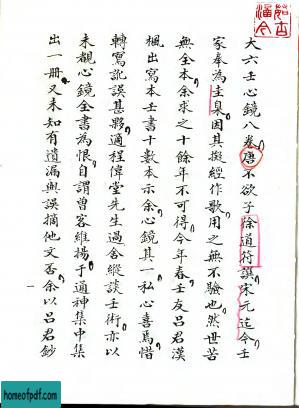 大六壬心鏡八卷唐不欲子徐道符譔宋元迄今壬
家奉為圭臬因其擬經作歌用之無不驗也然世苦
無全本余求之十餘年不可得今年春壬友呂君漢
楓出寫本壬書十數本示余心鏡其一私心喜焉惜
轉寫訛誤甚夥適程偉堂先生過舍縱談壬術亦以
未觀心鏡全書為恨自謂曾客維揚于通神集中集
出一冊又未知有遺漏與誤摘他文否余以呂君鈔
一
homeofpdf.com